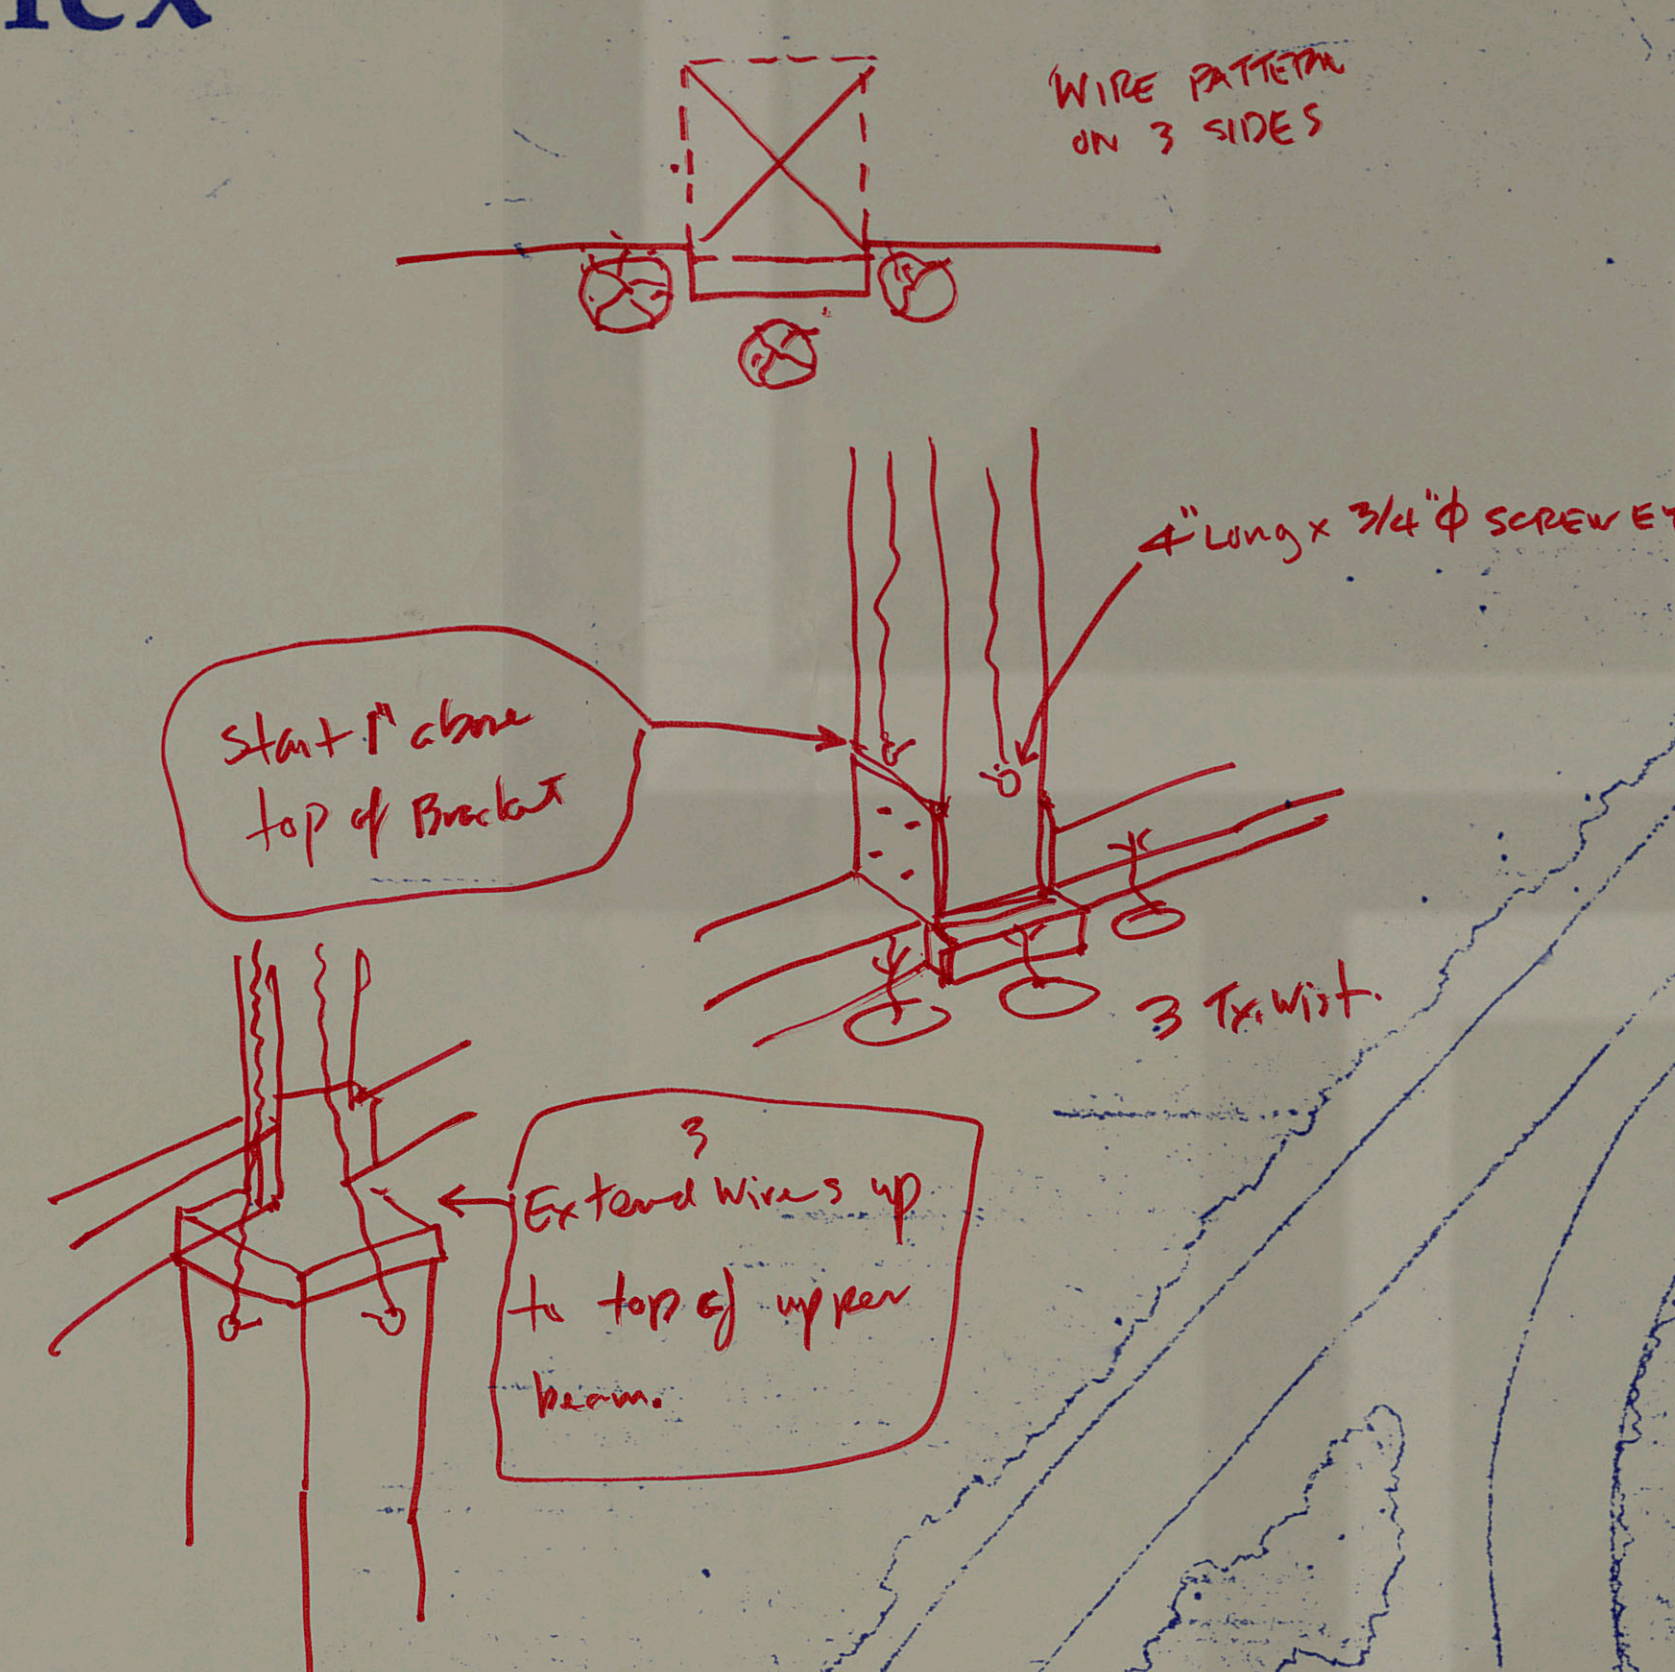 WIRE PATTERN
ON 3 SIDES
4" Long x 3/4" ϕ SCREW EY
Start 1" above
top of Bracket
3 Tx. Wist.
3
Extend Wires up
to top of upper
beam.